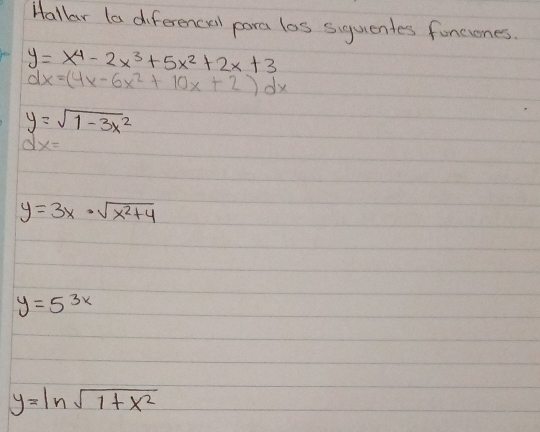 Hallar la diferencial para las siguientes funciones.
y = x⁴ - 2x³ + 5x² + 2x + 3
dx = (4x - 6x² + 10x + 2) dx
y = √(1 - 3x²)
dx =
y = 3x · √(x² + 4)
y = 5³ˣ
y = ln √(1 + x²)